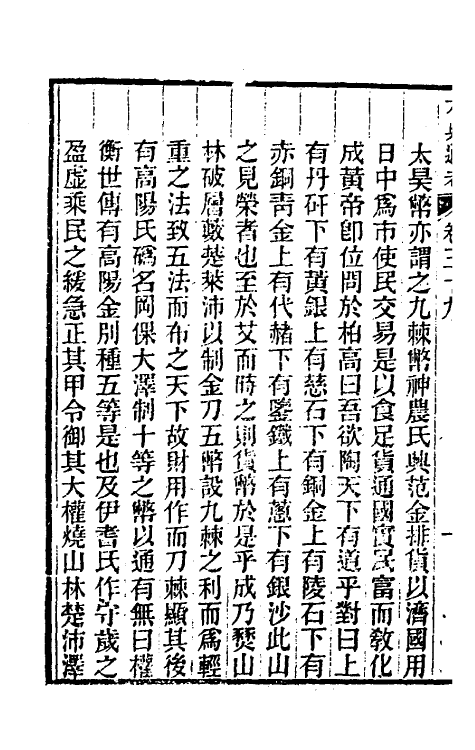 太昊幣亦謂之九棘幣神農氏興范金排貨以濟國用
日中爲市使民交易是以食足貨通國實民富而敎化
成黃帝卽位問於柏高曰吾欲陶天下有道乎對曰上
有丹矸下有黃銀上有慈石下有銅金上有陵石下有
赤銅靑金上有代赭下有鑒鐵上有蔥下有銀沙此山
之見榮者也至於艾而時之則貨幣於是乎成乃燹山
林破層藪楚萊沛以制金刀五幣設九棘之利而爲輕
重之法致五法而布之天下故財用作而刀棘顯其後
有高陽氏碼名岡倮大澤制十等之幣以通有無曰權
衡世傳有高陽金別種五等是也及伊耆氏作守歲之
盈虛乘民之緩急正其甲令御其大權燒山林楚沛澤